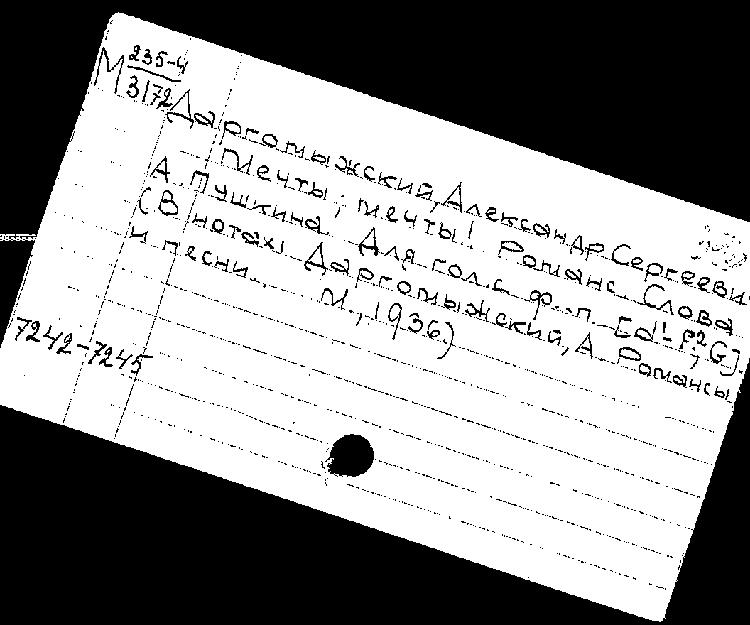 М 235-4
3172
Даргомыжский, Александр Сергеевич
Мечты, мечты! Романс. Слова
А. Пушкина. Для гол. с ф.-п. [d¹-g²; G].
(В нотах: Даргомыжский, А. Романсы
и песни... М., 1936.)
7242-7245